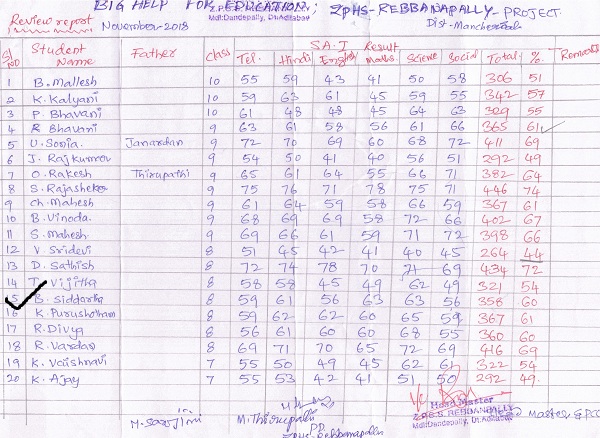 BIG HELP FOR EDUCATION; ZPHS-REBBANAPALLY-PROJECT
Review report November-2018 Mdl:Dandepally, Dt:Adilabad Dist-Mancherial
Sl NO Student Name Father Class SA-I Result Total % Remarks
Tel. Hindi English Maths Science Social
1 B. Mallesh 10 55 59 43 41 50 58 306 51
2 K. Kalyani 10 59 63 61 45 59 55 342 57
3 P. Bhavani 10 61 48 48 45 64 63 329 55
4 R Bhavani 9 63 61 58 56 61 66 365 61
5 U. Sonia. Janardan 9 72 70 69 60 68 72 411 69
6 J. Rajkumar 9 54 50 41 40 56 51 292 49
7 O. Rakesh Thirupathi 9 65 61 64 55 66 71 382 64
8 S. Rajasheker 9 75 76 71 78 75 71 446 74
9 Ch. Mahesh 9 61 64 59 58 66 59 367 61
10 B. Vinoda. 9 68 69 69 58 72 66 402 67
11 S. Mahesh 9 69 66 61 59 71 72 398 66
12 V. Sridevi 8 51 45 42 41 40 45 264 44
13 D. Sathish 8 72 74 78 70 71 69 434 72
14 T. Vijitha 8 58 58 45 49 62 49 321 54
15 B. Siddartha 8 59 61 56 63 63 56 358 60
16 K. Purushotham 8 59 62 62 60 65 59 367 61
17 R. Divya 8 56 61 60 60 68 55 360 60
18 R. Vardan 8 69 71 70 65 72 69 416 69
19 K. Vaishnavi 7 55 50 49 45 62 61 322 54
20 K. Ajay 7 55 53 42 41 51 50 292 49.
M. Sarojini M. Thirupathi Head Master
Z.P.H.S. REBBANAPALLY
PD ZPHS-Rebbanapally Mdl:Dandepally, Dt:Adilabad Master & PCC